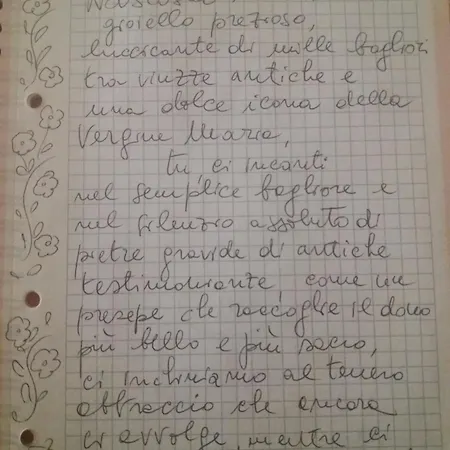 gioiello prezioso,
luccicante di mille bagliori
tra viuzze antiche e
una dolce icona della
Vergine Maria,
tu, ci incanti
nel semplice bagliore e
nel silenzio assoluto di
pietre gravide di antiche
testimonianze, come un
presepe che raccoglie il dono
più bello e più sacro,
ci inchiniamo al tenero
abbraccio che ancora
ci avvolge, mentre ci